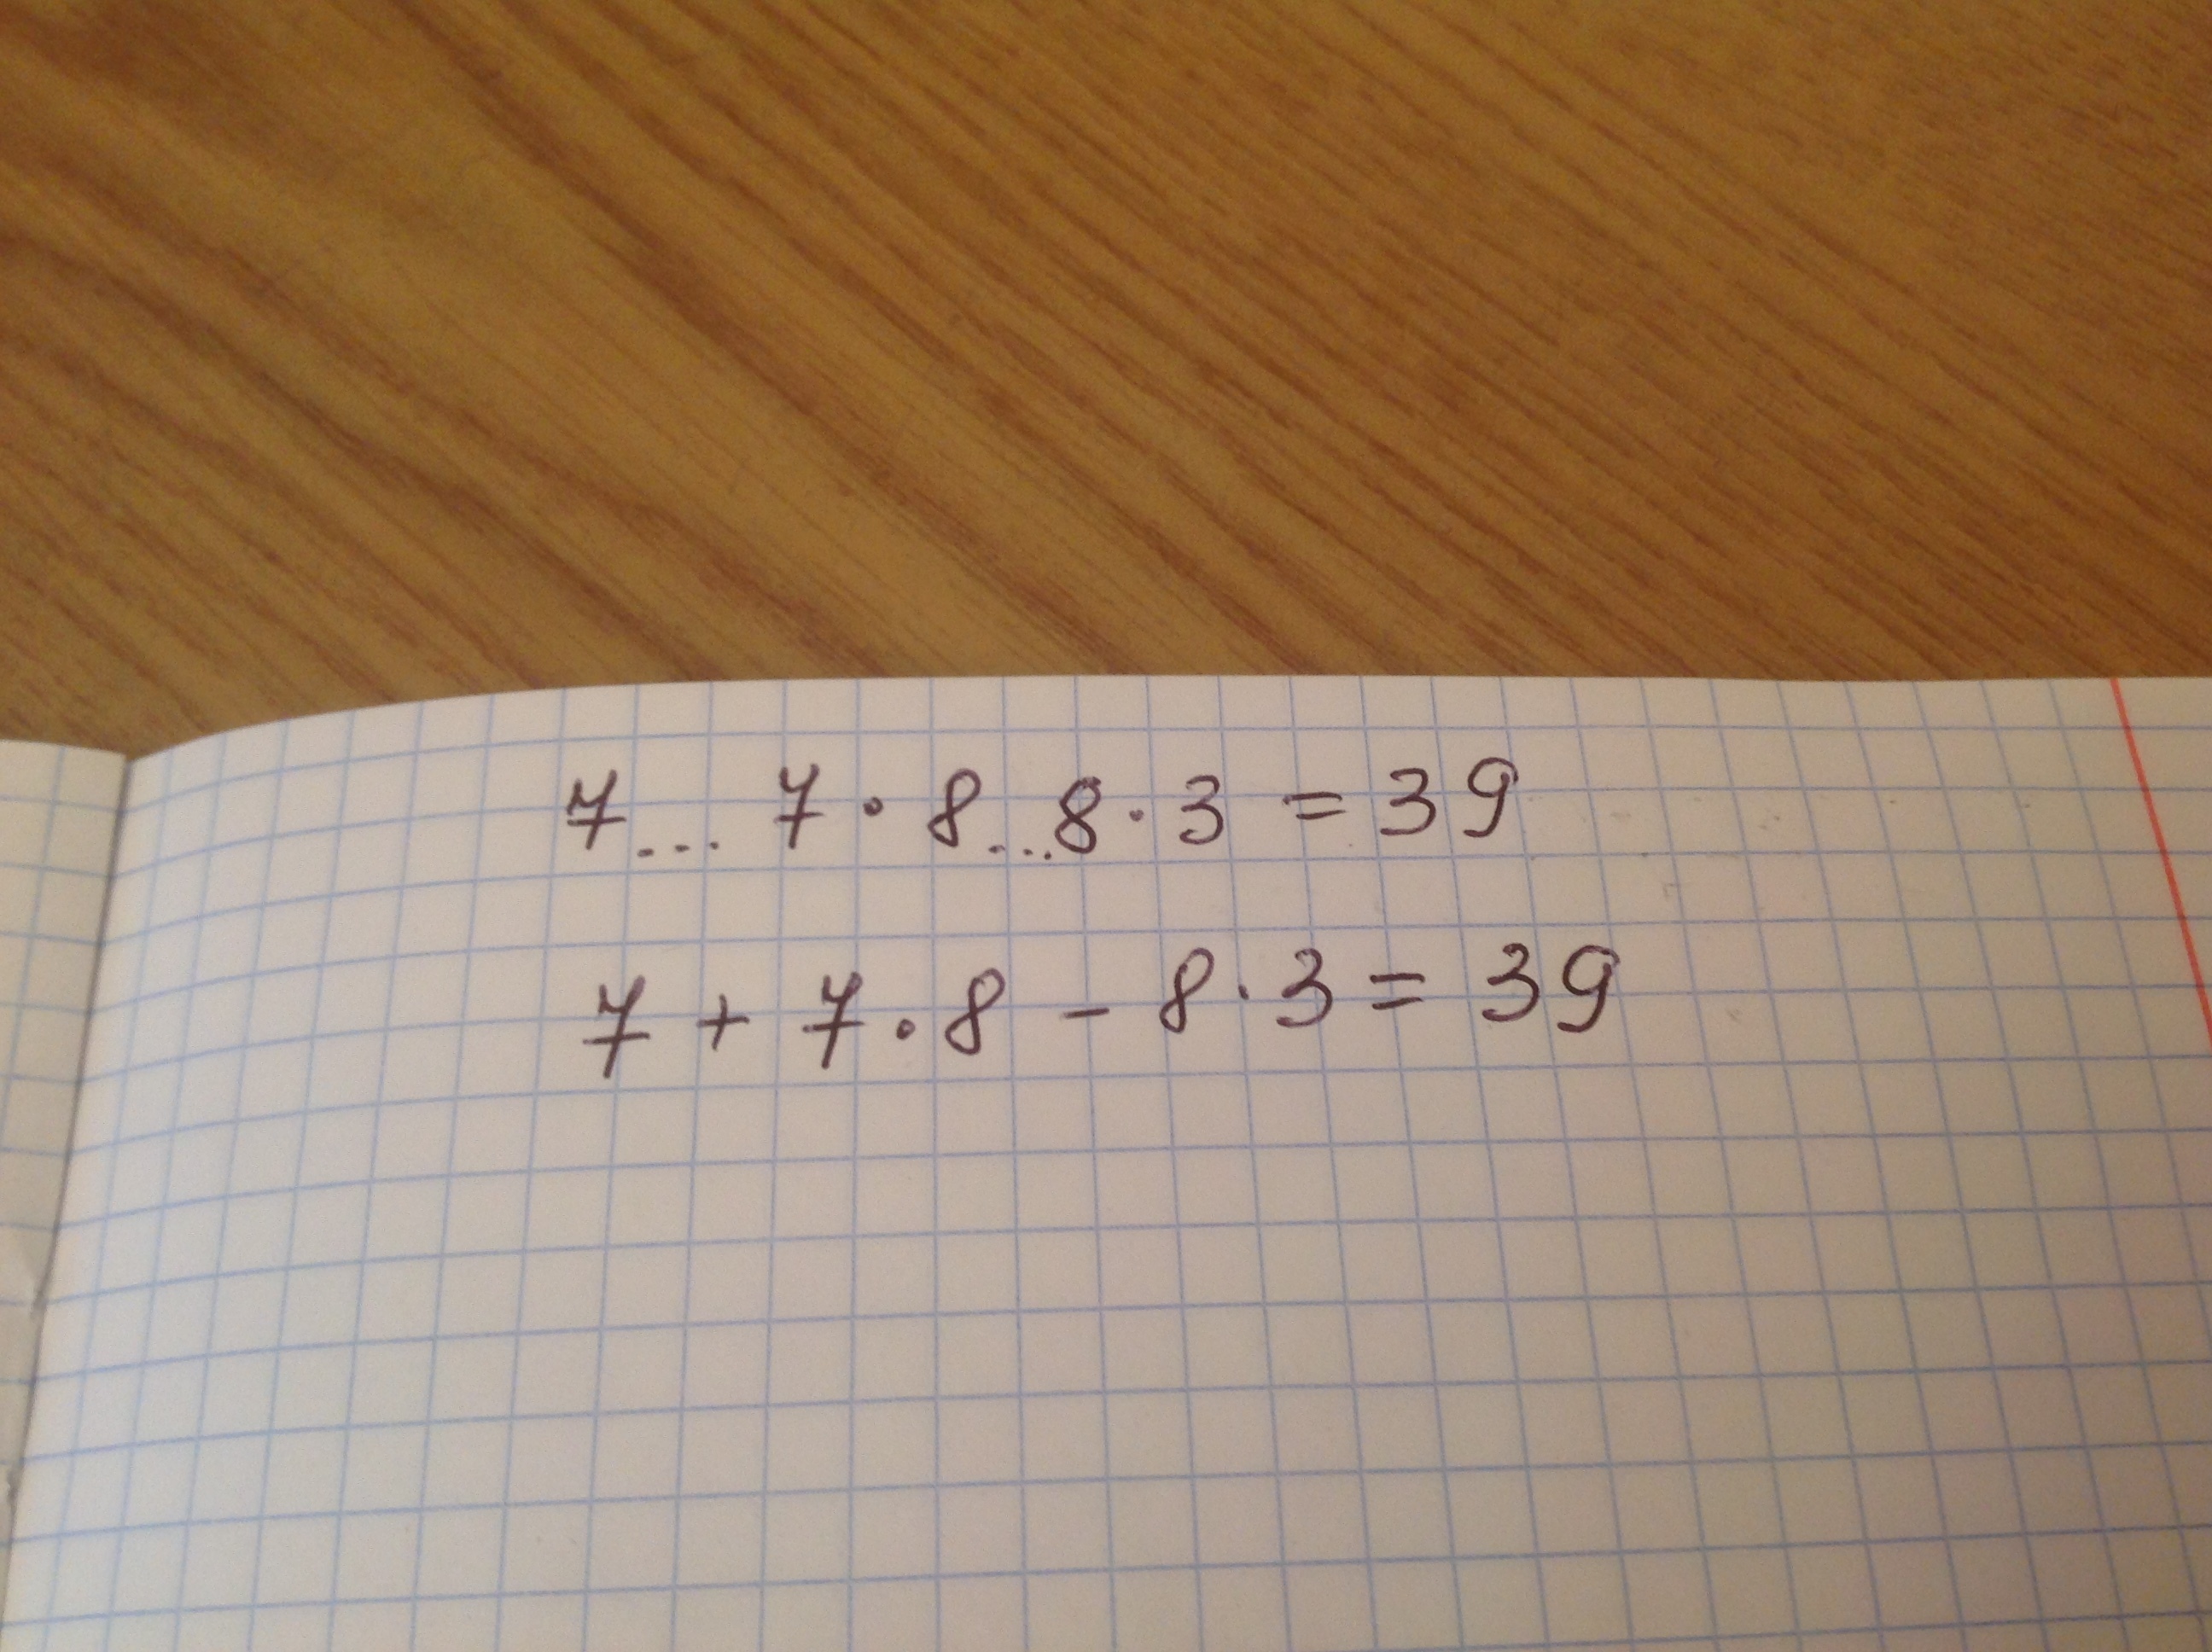 7...7·8...8·3=39
7+7·8-8·3=39